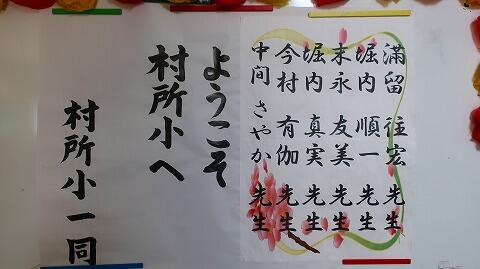 満留 往宏 先生
堀内 順一 先生
末永 友美 先生
堀内 真実 先生
今村 有伽 先生
中間 さやか 先生
ようこそ
村所小へ
村所小一同